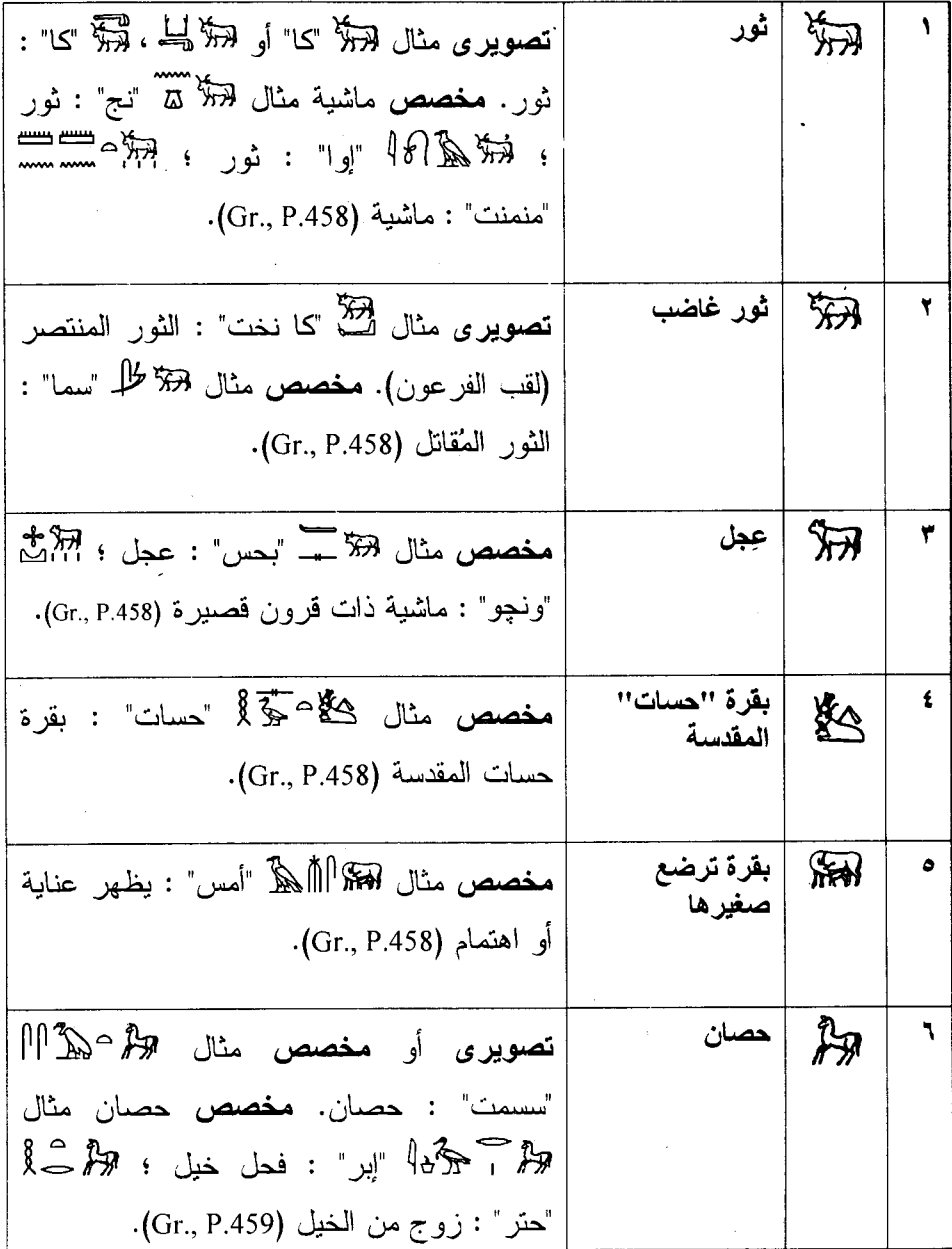 ١ ثور تصويرى مثال "كا" أو ، "كا" :
ثور. مخصص ماشية مثال "نج" : ثور
؛ "إوا" : ثور ؛
"منمنت" : ماشية (Gr., P.458).
٢ ثور غاضب تصويرى مثال "كا نخت" : الثور المنتصر
(لقب الفرعون). مخصص مثال "سما" :
الثور المُقاتل (Gr., P.458).
٣ عِجل مخصص مثال "بحس" : عجل ؛
"ونچو" : ماشية ذات قرون قصيرة (Gr., P.458).
٤ بقرة "حسات" مخصص مثال "حسات" : بقرة
المقدسة حسات المقدسة (Gr., P.458).
٥ بقرة ترضع مخصص مثال "أمس" : يظهر عناية
صغيرها أو اهتمام (Gr., P.458).
٦ حصان تصويرى أو مخصص مثال
"سسمت" : حصان. مخصص حصان مثال
"إبر" : فحل خيل ؛
"حتر" : زوج من الخيل (Gr., P.459).